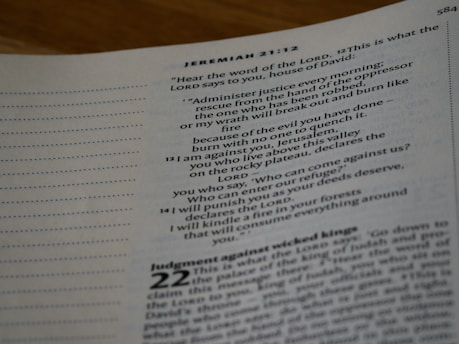 JEREMIAH 21:12
584
"Hear the word of the LORD. 12 This is what the
LORD says to you, house of David:
'"Administer justice every morning;
rescue from the hand of the oppressor
the one who has been robbed,
or my wrath will break out and burn like
fire
because of the evil you have done –
burn with no one to quench it.
13 I am against you, Jerusalem,
you who live above this valley
on the rocky plateau, declares the
LORD –
you who say, 'Who can come against us?
Who can enter our refuge?'
14 I will punish you as your deeds deserve,
declares the LORD.
I will kindle a fire in your forests
that will consume everything around
you." '
Judgment against wicked kings
22 This is what the LORD says: 'Go down to
the palace of the king of Judah and pro-
claim this message there: 2 "Hear the word of
the LORD to you, king of Judah,
David's throne
people who come through these gates.
what the LORD says: